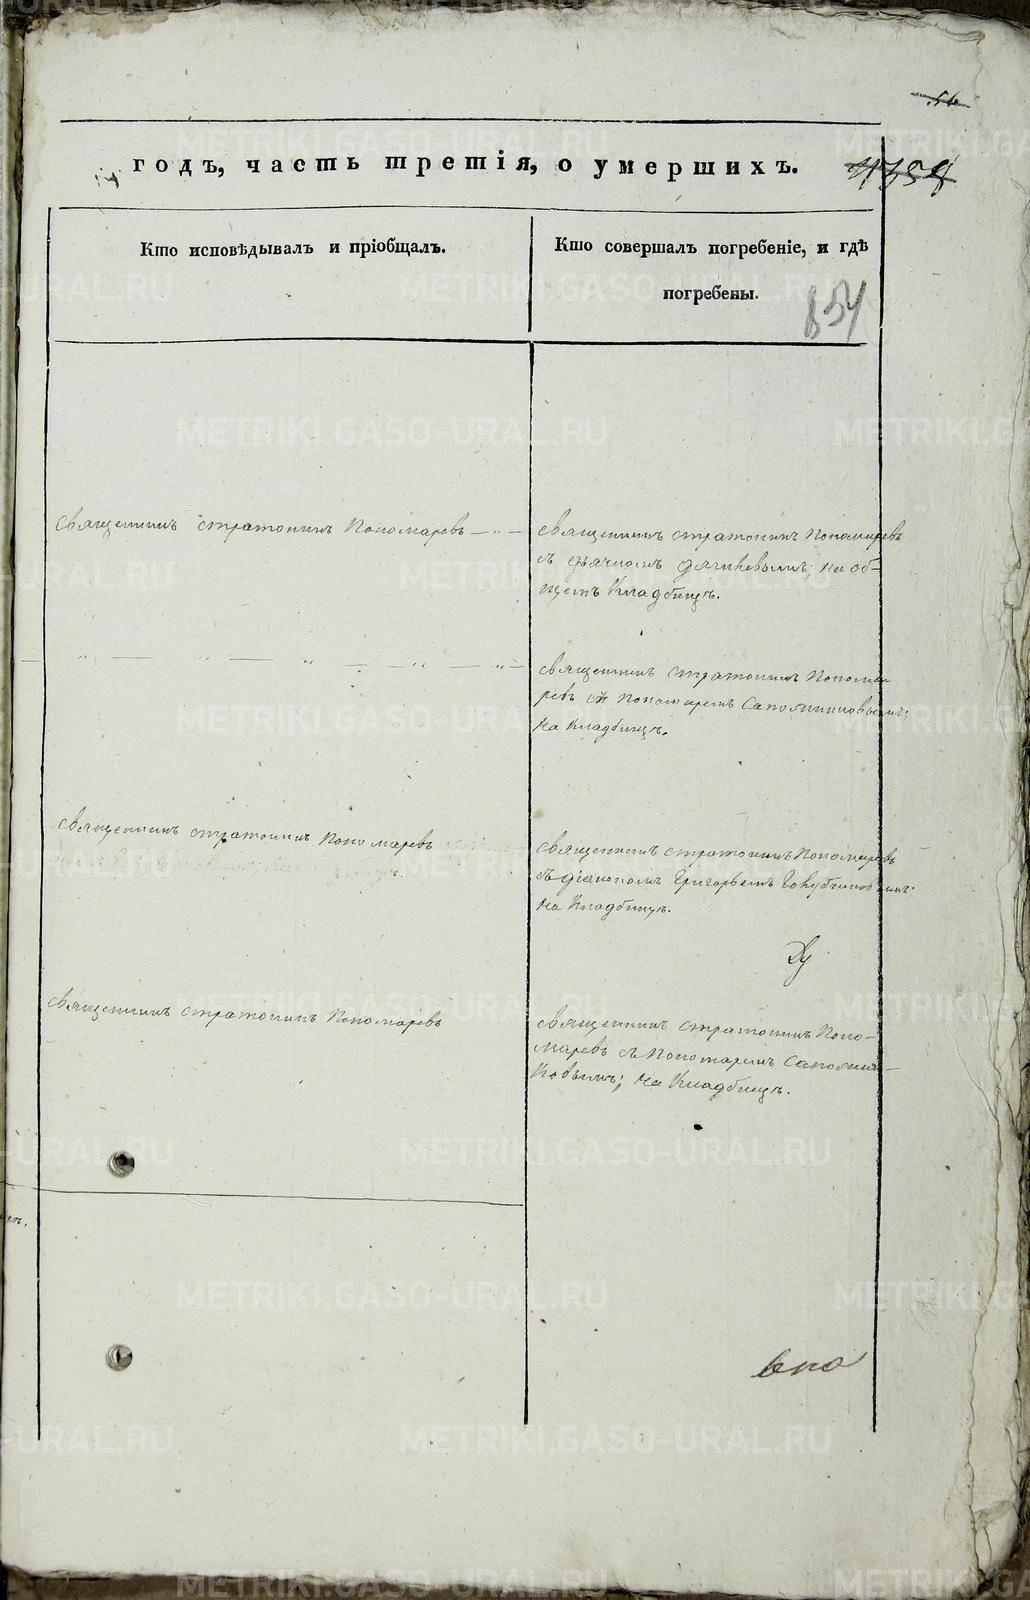 годъ, часть третія, о умершихъ.
854
Кто исповѣдывалъ и пріобщалъ.
Кто совершалъ погребеніе, и гдѣ
погребены.
Священникъ Стратоникъ Пономаревъ
Священникъ Стратоникъ Пономаревъ
съ дьячкомъ на об-
щемъ Кладбищѣ.
Священникъ Стратоникъ Понома-
ревъ съ Пономаремъ Сапожниковымъ;
на Кладбищѣ.
Священникъ Стратоникъ Пономаревъ
Священникъ Стратоникъ Пономаревъ
съ діакономъ Григорьемъ
на Кладбищѣ.
Священникъ Стратоникъ Пономаревъ
Священникъ Стратоникъ Поно-
маревъ съ Пономаремъ Сапожни-
ковымъ; на Кладбищѣ.
METRIKI.GASO-URAL.RU